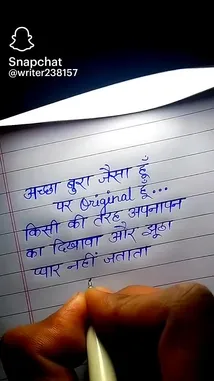 Snapchat
@writer238157
अच्छा बुरा जैसा हूँ
पर Original हूँ...
किसी की तरह अपनापन
का दिखावा और झूठा
प्यार नहीं जताता